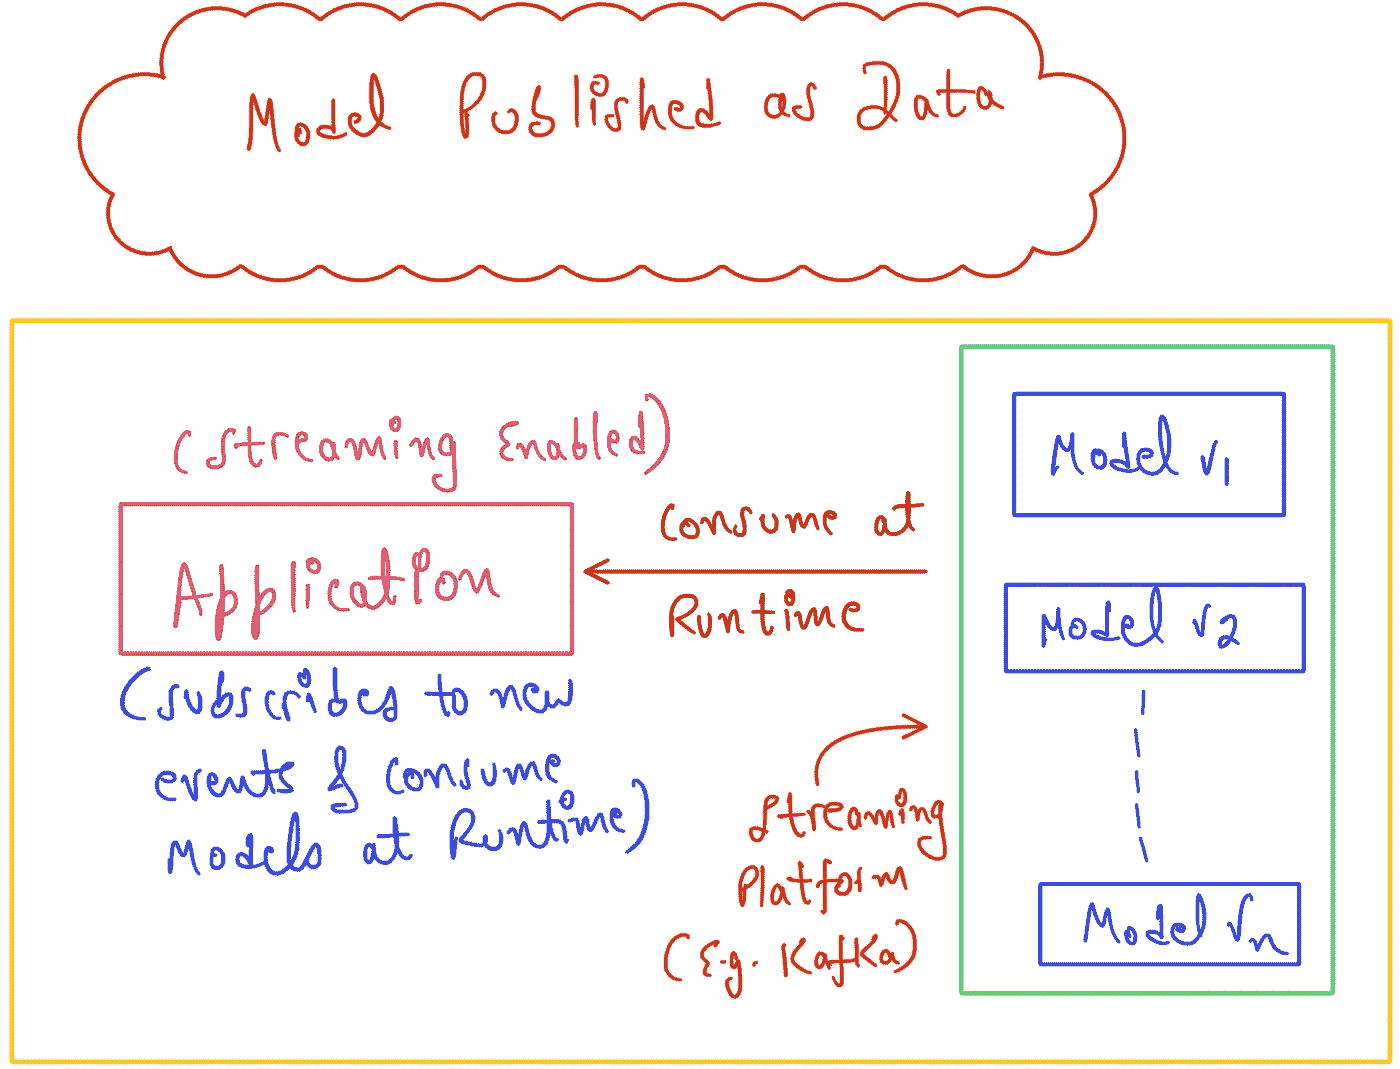 Model Published as Data
(Streaming Enabled)
Application
(subscribes to new
events & consume
Models at Runtime)
Consume at
Runtime
Streaming
Platform
(E.g. Kafka)
Model v1
Model v2
Model Vn